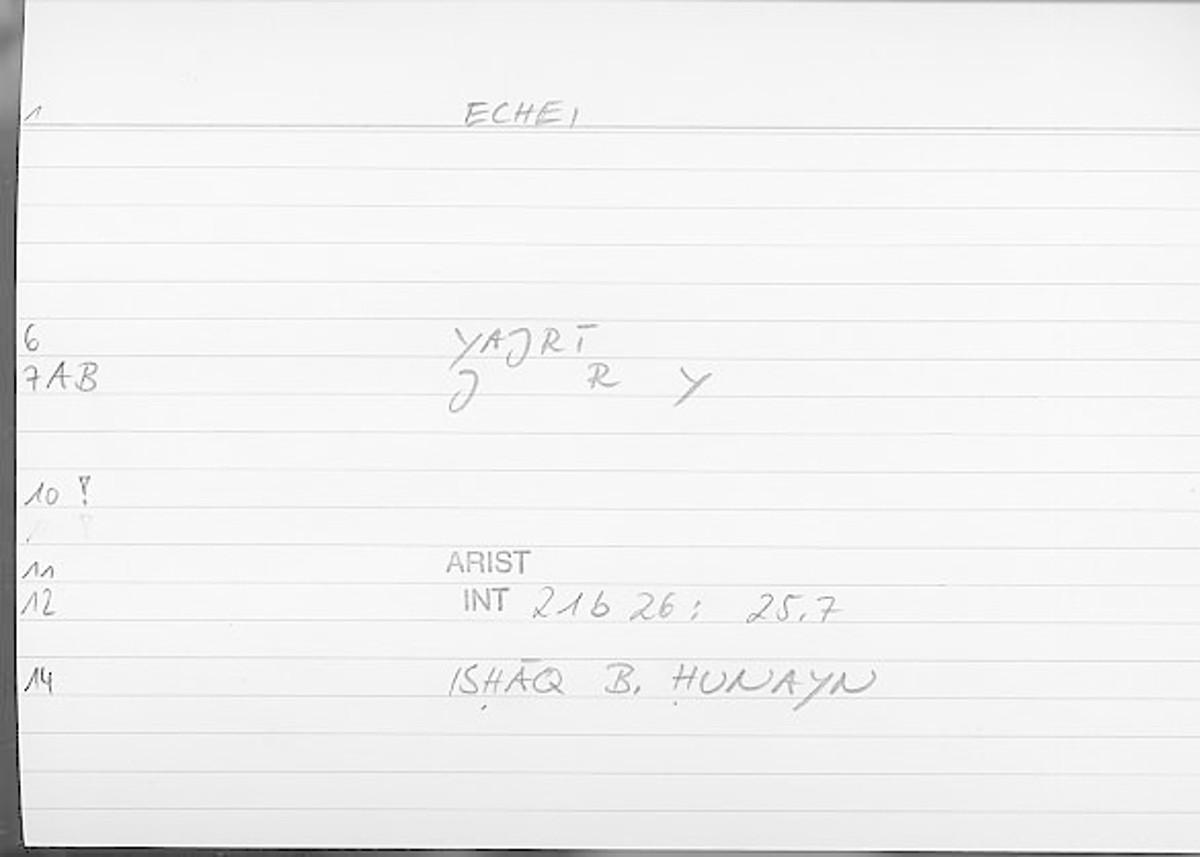 1 ECHEI
6 YAJRĪ
7AB J R Y
10 !
11 ARIST
12 INT 21b 26: 25.7
14 ISḤĀQ B. ḤUNAYN